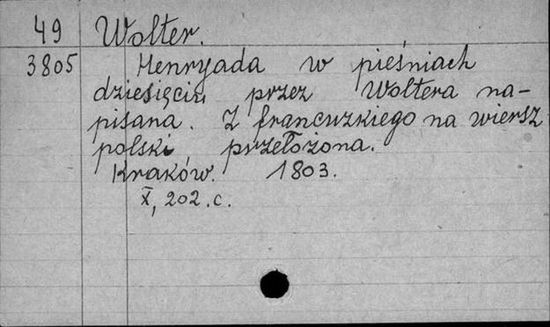 49 Wolter.
3805 Henryada w pieśniach
dziesięciu przez Woltera na-
pisana. Z francuzkiego na wiersz
polski przełożona.
Kraków. 1803.
X, 202. c.